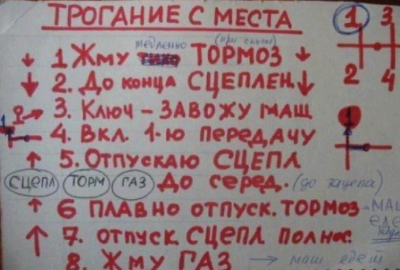 ТРОГАНИЕ С МЕСТА
1 3
2 4
медленно (при спуске)
1 ЖМУ ТИХО ТОРМОЗ
2. ДО КОНЦА СЦЕПЛЕН.
3. КЛЮЧ – ЗАВОЖУ МАШ
4. ВКЛ. 1-Ю ПЕРЕДАЧУ
1
1
5. ОТПУСКАЮ СЦЕПЛ
СЦЕПЛ ТОРМ ГАЗ ДО СЕРЕД. (до зацепа)
6 ПЛАВНО ОТПУСК. ТОРМОЗ – МАШ
ЕДЕ
7. ОТПУСК. СЦЕПЛ ПОЛНОС.
8. ЖМУ ГАЗ → маш едет